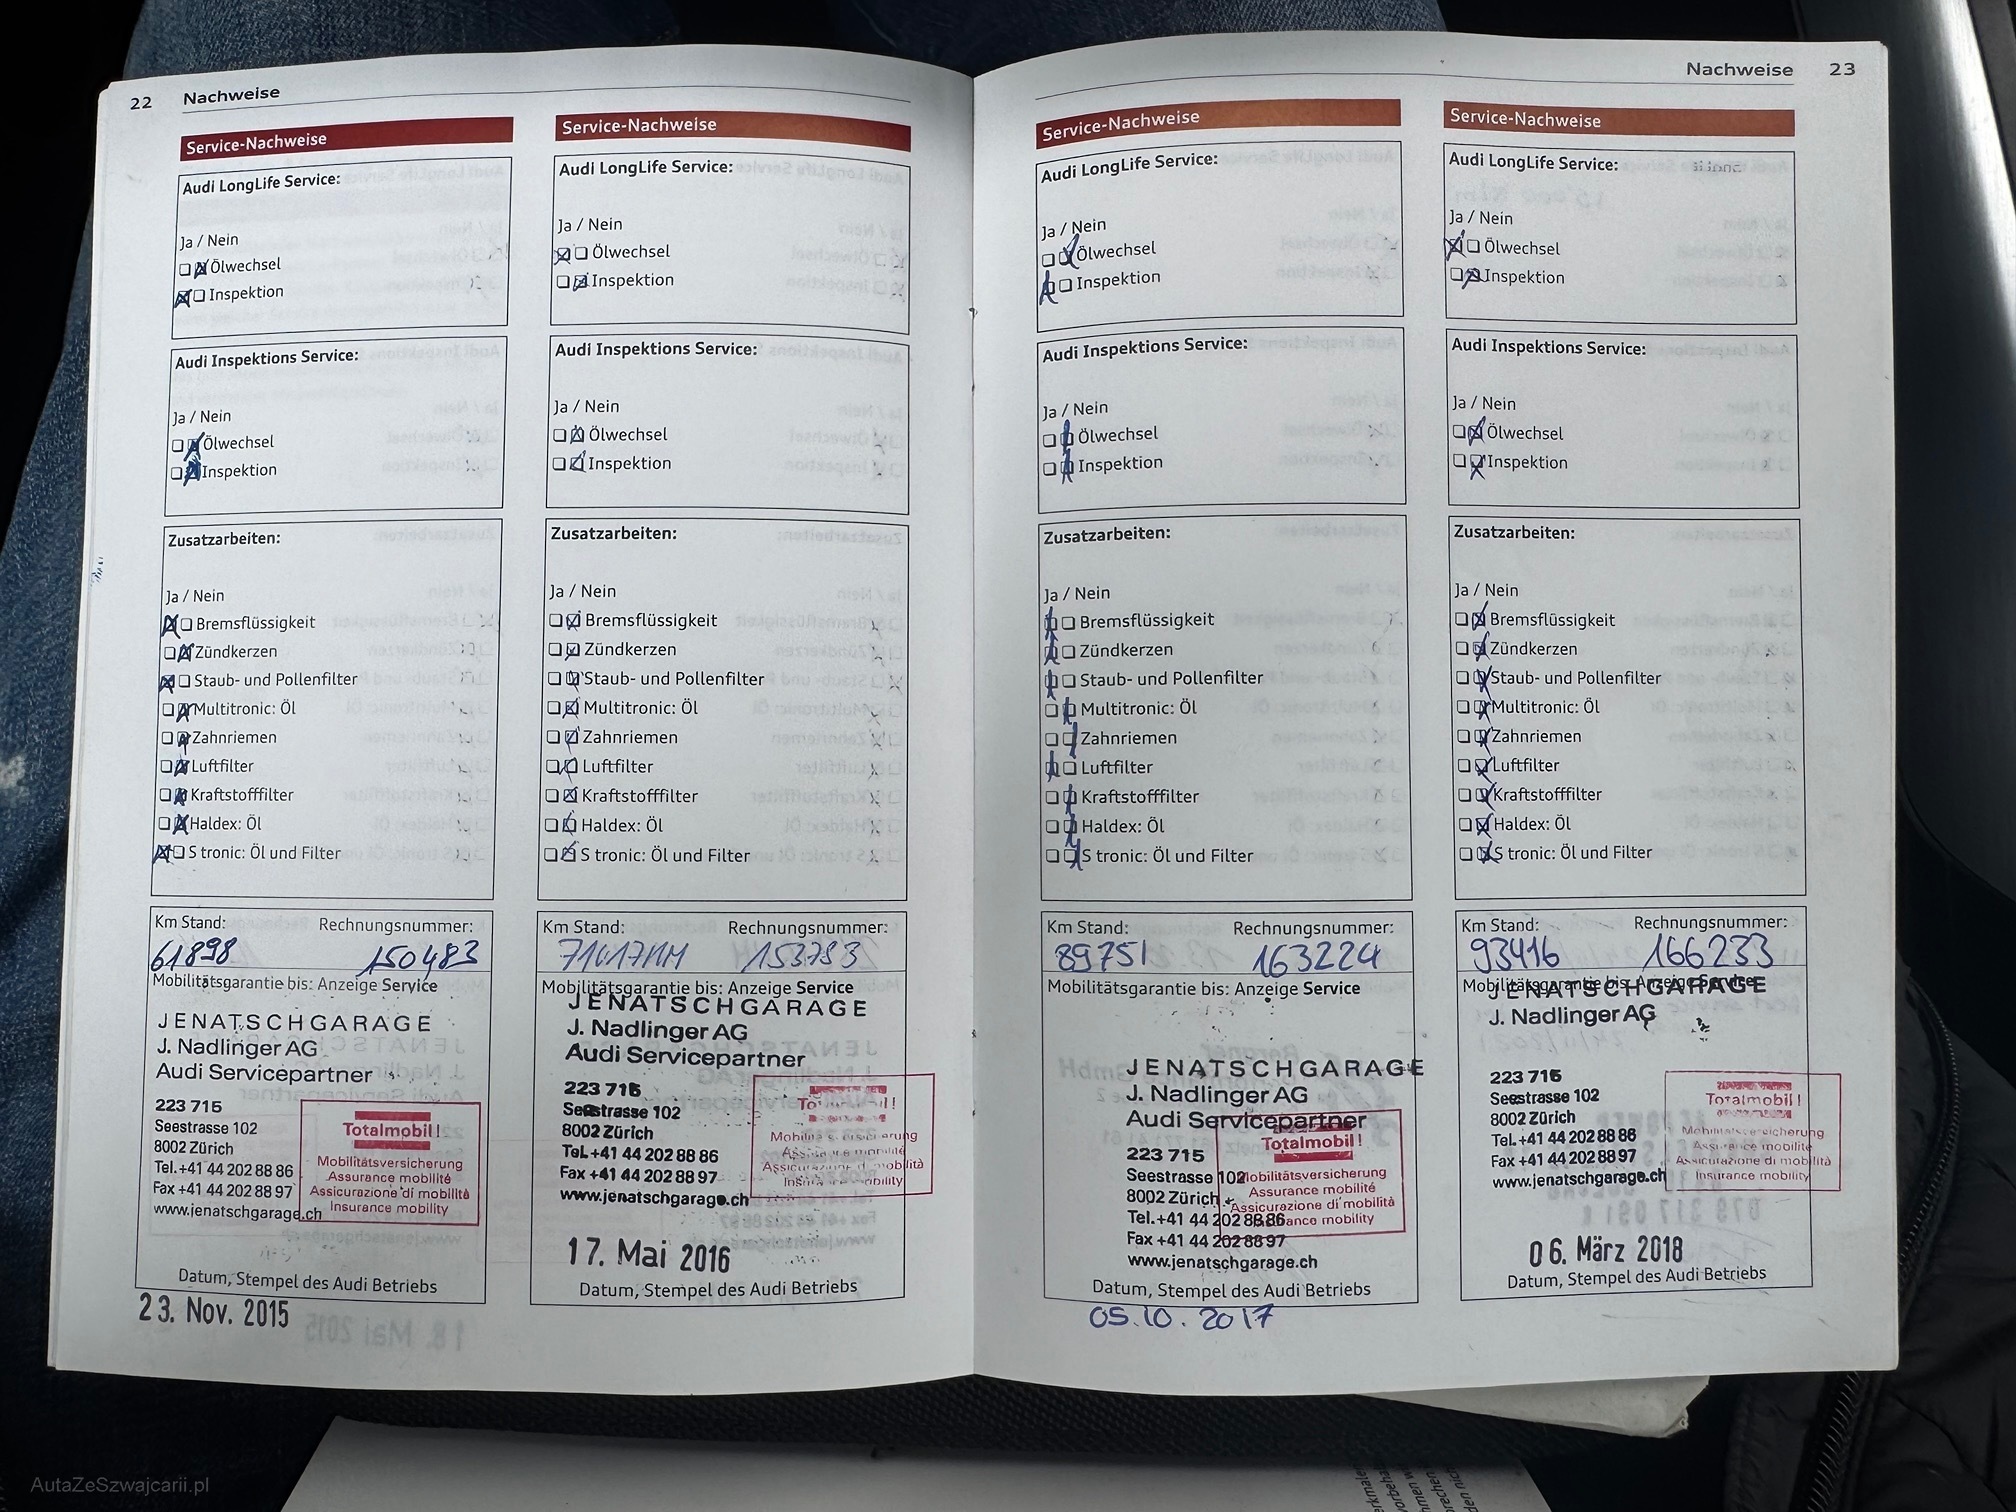 22 Nachweise
Service-Nachweise
Audi LongLife Service:
Ja / Nein
Ölwechsel
Inspektion
Audi Inspektions Service:
Ja / Nein
Ölwechsel
Inspektion
Zusatzarbeiten:
Ja / Nein
Bremsflüssigkeit
Zündkerzen
Staub- und Pollenfilter
Multitronic: Öl
Zahnriemen
Luftfilter
Kraftstofffilter
Haldex: Öl
S tronic: Öl und Filter
Km Stand: Rechnungsnummer:
61898 150483
Mobilitätsgarantie bis: Anzeige Service
JENATSCHGARAGE
J. Nadlinger AG
Audi Servicepartner
223 715
Seestrasse 102
8002 Zürich
Tel.+41 44 202 88 86
Fax +41 44 202 88 97
www.jenatschgarage.ch
Totalmobil!
Mobilitätsversicherung
Assurance mobilité
Assicurazione di mobilità
Insurance mobility
Datum, Stempel des Audi Betriebs
23. Nov. 2015
Service-Nachweise
Audi LongLife Service:
Ja / Nein
Ölwechsel
Inspektion
Audi Inspektions Service:
Ja / Nein
Ölwechsel
Inspektion
Zusatzarbeiten:
Ja / Nein
Bremsflüssigkeit
Zündkerzen
Staub- und Pollenfilter
Multitronic: Öl
Zahnriemen
Luftfilter
Kraftstofffilter
Haldex: Öl
S tronic: Öl und Filter
Km Stand: Rechnungsnummer:
153783
Mobilitätsgarantie bis: Anzeige Service
JENATSCHGARAGE
J. Nadlinger AG
Audi Servicepartner
223 715
Seestrasse 102
8002 Zürich
Tel.+41 44 202 88 86
Fax +41 44 202 88 97
www.jenatschgarage.ch
Totalmobil!
Mobilitätsversicherung
Assurance mobilité
Assicurazione di mobilità
Insurance mobility
17. Mai 2016
Datum, Stempel des Audi Betriebs
Nachweise 23
Service-Nachweise
Audi LongLife Service:
Ja / Nein
Ölwechsel
Inspektion
Audi Inspektions Service:
Ja / Nein
Ölwechsel
Inspektion
Zusatzarbeiten:
Ja / Nein
Bremsflüssigkeit
Zündkerzen
Staub- und Pollenfilter
Multitronic: Öl
Zahnriemen
Luftfilter
Kraftstofffilter
Haldex: Öl
S tronic: Öl und Filter
Km Stand: Rechnungsnummer:
89751 163224
Mobilitätsgarantie bis: Anzeige Service
JENATSCHGARAGE
J. Nadlinger AG
Audi Servicepartner
223 715
Seestrasse 102
8002 Zürich
Tel.+41 44 202 88 86
Fax +41 44 202 88 97
www.jenatschgarage.ch
Totalmobil!
Mobilitätsversicherung
Assurance mobilité
Assicurazione di mobilità
Insurance mobility
Datum, Stempel des Audi Betriebs
05.10.2017
Service-Nachweise
Audi LongLife Service:
Ja / Nein
Ölwechsel
Inspektion
Audi Inspektions Service:
Ja / Nein
Ölwechsel
Inspektion
Zusatzarbeiten:
Ja / Nein
Bremsflüssigkeit
Zündkerzen
Staub- und Pollenfilter
Multitronic: Öl
Zahnriemen
Luftfilter
Kraftstofffilter
Haldex: Öl
S tronic: Öl und Filter
Km Stand: Rechnungsnummer:
93416 166233
Mobilitätsgarantie bis: Anzeige Service
JENATSCHGARAGE
J. Nadlinger AG
223 715
Seestrasse 102
8002 Zürich
Tel.+41 44 202 88 86
Fax +41 44 202 88 97
www.jenatschgarage.ch
Totalmobil!
Mobilitätsversicherung
Assurance mobilité
Assicurazione di mobilità
Insurance mobility
06. März 2018
Datum, Stempel des Audi Betriebs
AutaZeSzwajcarii.pl